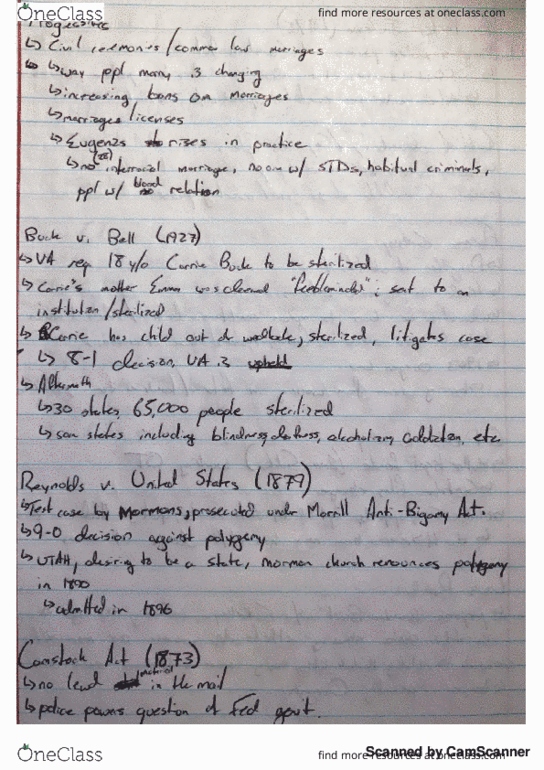 OneClass
find more resources at oneclass.com
Progressive
↳ Civil ceremonies/common law marriages
↳ way ppl marry is changing
↳ increasing bans on marriages
↳ marriages licenses
↳ Eugenics rises in practice
↳ no interracial marriage, no one w/ STDs, habitual criminals,
ppl w/ blood relation
Buck v. Bell (1927)
↳ VA req 18 y/o Carrie Buck to be sterilized
↳ Carrie's mother Emma was deemed "feebleminded"; sent to an
institution/sterilized
↳ Carrie has child out of wedlock, sterilized, litigates case
↳ 8-1 decision, VA is upheld
↳ Aftermath
↳ 30 states, 65,000 people sterilized
↳ some states including blindness, deafness, alcoholism, addiction, etc
Reynolds v. United States (1879)
↳ Test case by Mormons, prosecuted under Morrill Anti-Bigamy Act.
↳ 9-0 decision against polygamy
↳ UTAH, desiring to be a state, mormon church renounces polygamy
in 1890
↳ admitted in 1896
Comstock Act (1873)
↳ no lewd material in the mail
↳ police powers question of Fed govt.
OneClass
find more resources at oneclass.com
Scanned by CamScanner